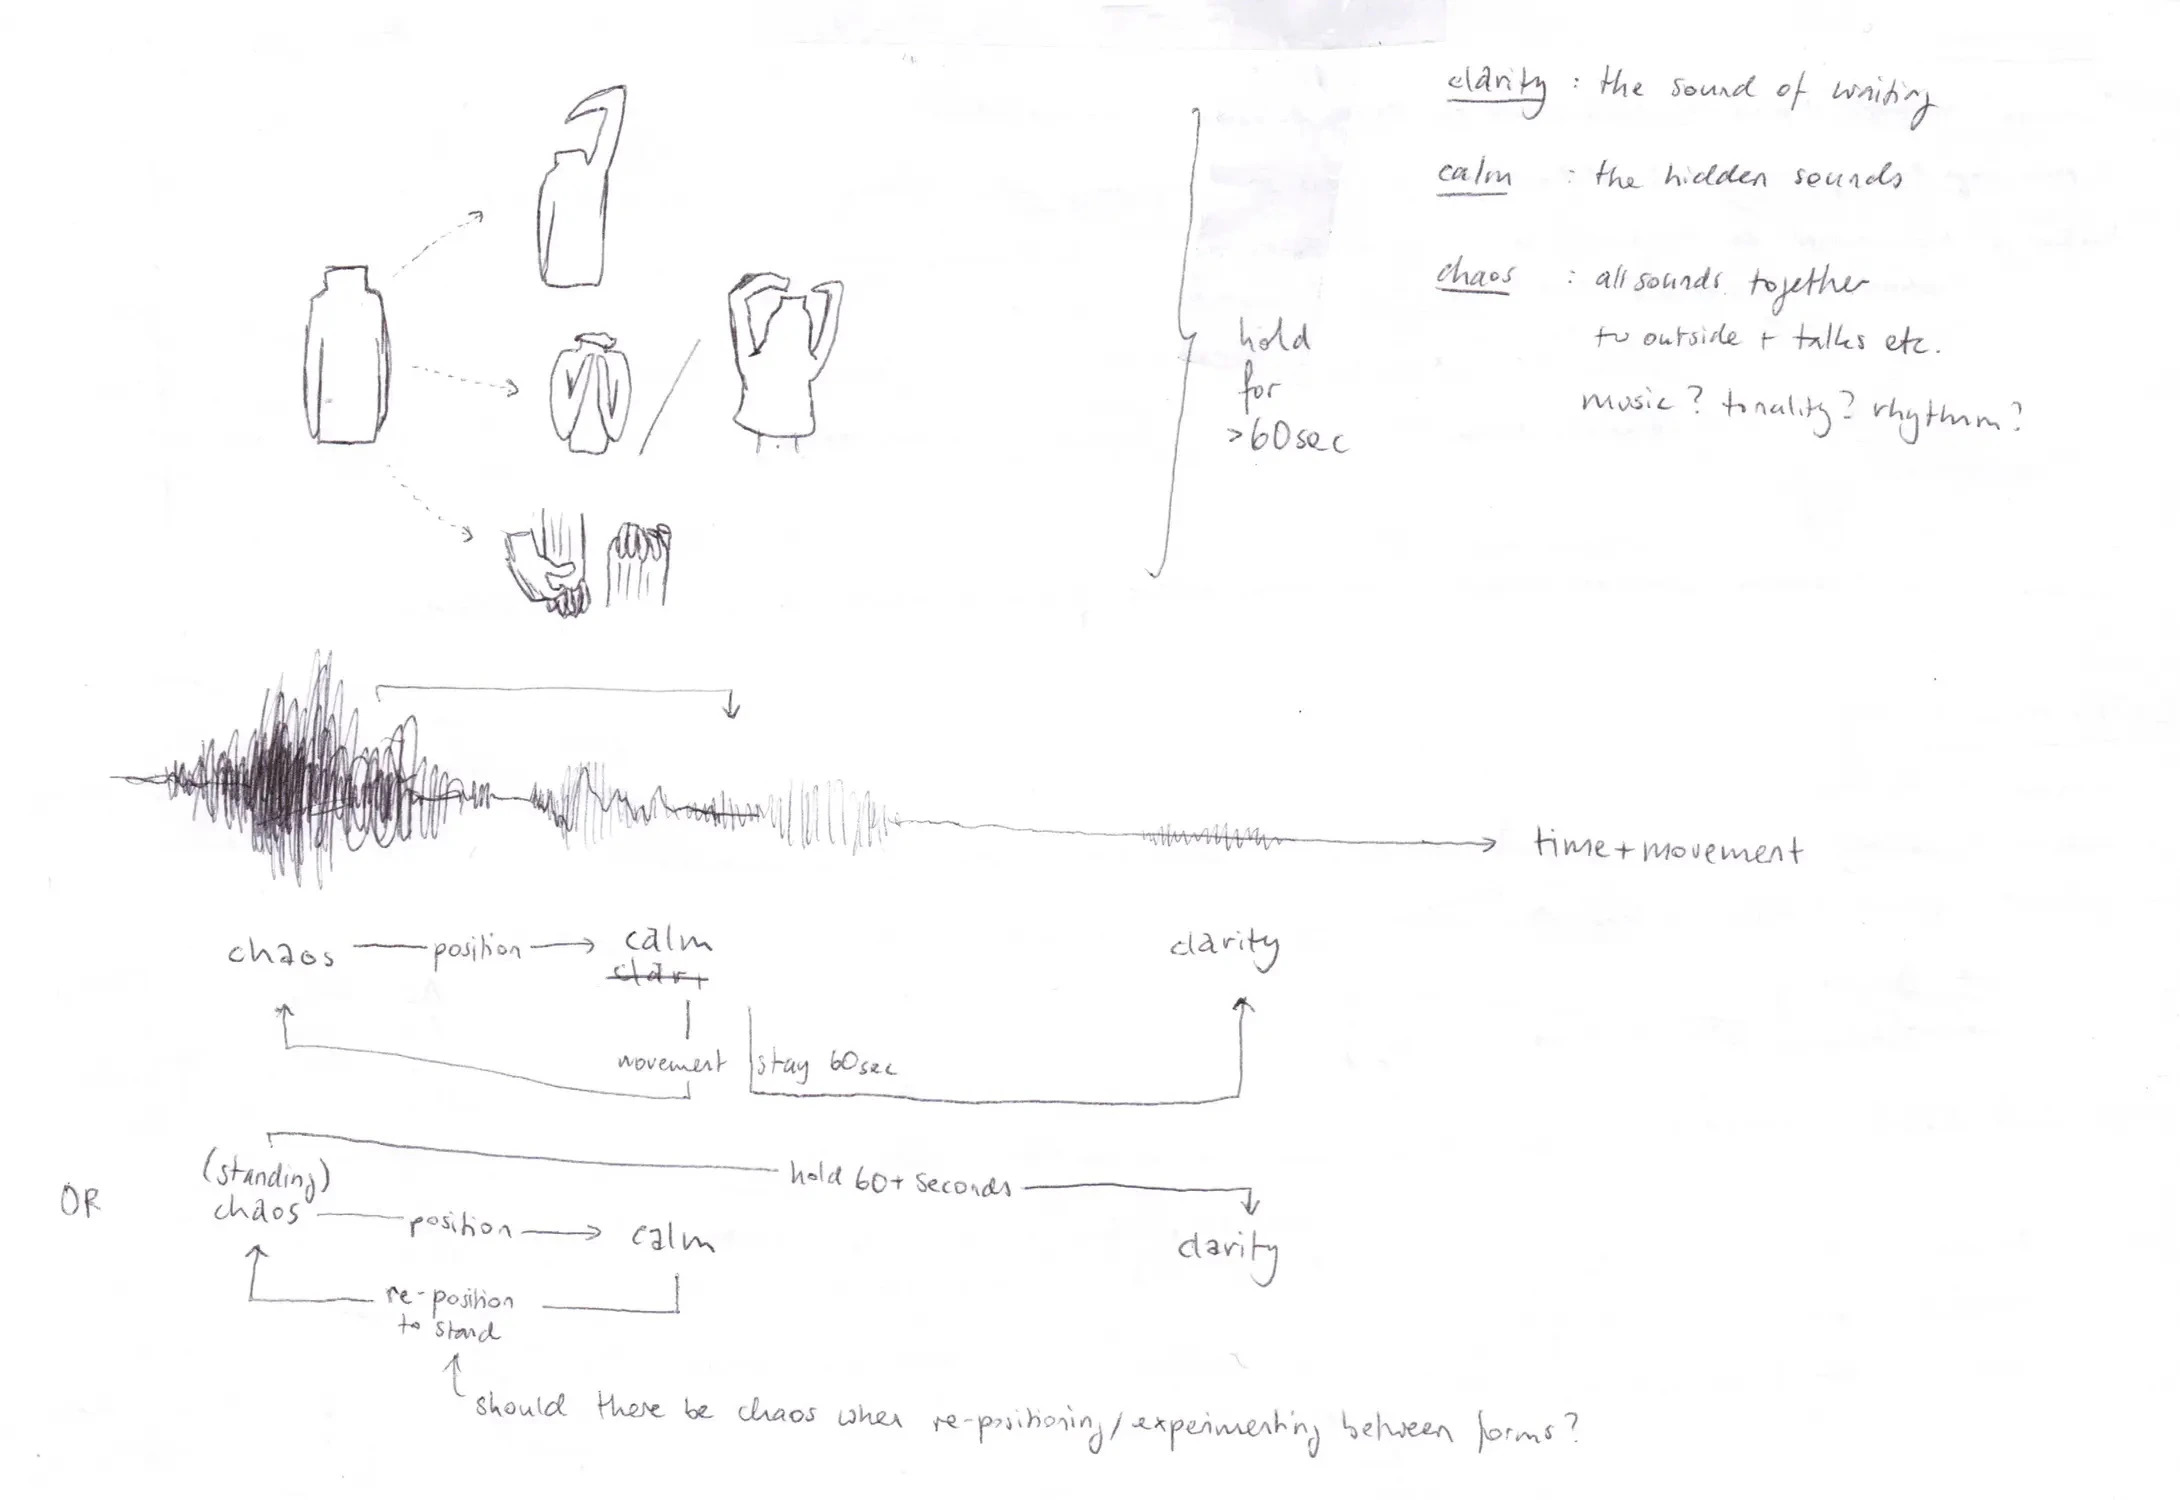 clarity : the sound of waiting
calm : the hidden sounds
chaos : all sounds together
to outside + talks etc.
music? tonality? rhythm?
hold
for
>60sec
time+movement
chaos position calm
clarity
movement
stay 60sec
OR
(standing)
chaos
hold 60+ seconds
position
calm
clarity
re-position
to stand
should there be chaos when re-positioning/experimenting between forms?